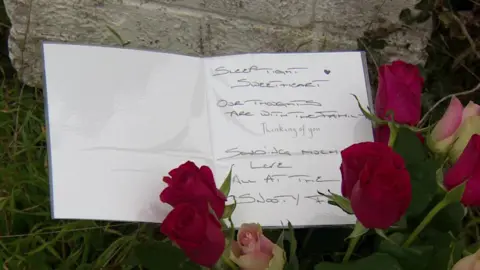 SLEEP TIGHT
SWEETHEART
OUR THOUGHTS
ARE WITH THE FAMILY
Thinking of you
SENDING MUCH
LOVE
ALL AT THE